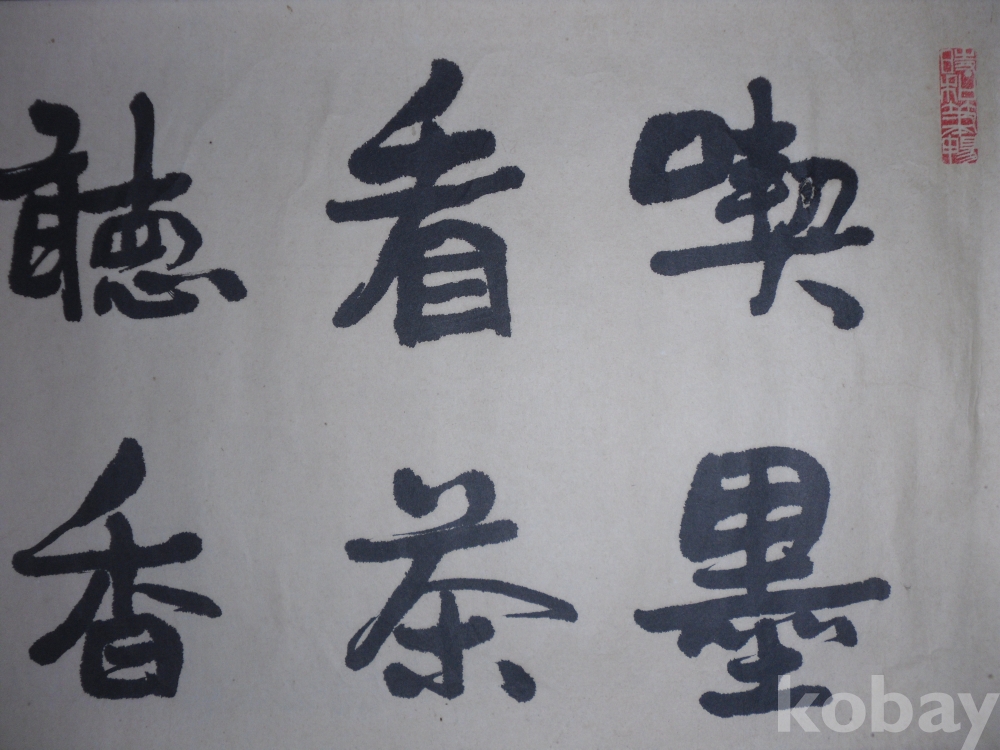 喫墨
看茶
聽香
kobay